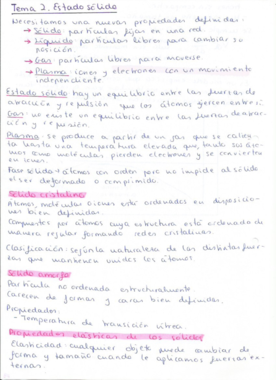 Tema 2. Estado sólido
Necesitamos una nuevas propiedades definidas:
→ Sólido partículas fijas en una red
→ Líquido partículas libres para cambiar su
posición
→ Gas partículas libres para moverse
→ Plasma iones y electrones con un movimiento
independiente
Estado sólido: hay un equilibrio entre las fuerzas de
atracción y repulsión que los átomos ejercen entre sí.
Gas: no existe un equilibrio entre las fuerzas de atrac-
ción y repulsión.
Plasma: se produce a partir de un gas que se calien-
ta hasta una temperatura elevada que, tanto sus áto-
mos como moléculas pierden electrones y se convierten
en iones.
Fase sólida: átomos con orden pero no impide al sólido
el ser deformado o comprimido.
Sólido cristalino
Átomos, moléculas o iones están ordenados en disposicio-
nes bien definidas.
Compuestos por átomos cuya estructura está ordenada de
manera regular formando redes cristalinas.
Clasificación: según la naturaleza de las distintas fuer-
zas que mantienen unidos los átomos.
Sólido amorfo
Partícula no ordenada estructuralmente
Carecen de formas y caras bien definidas.
Propiedades:
- Temperatura de transición vítrea.
Propiedades elásticas de los sólidos
Elasticidad: cualquier objeto puede cambiar de
forma y tamaño cuando le aplicamos fuerzas ex-
ternas.